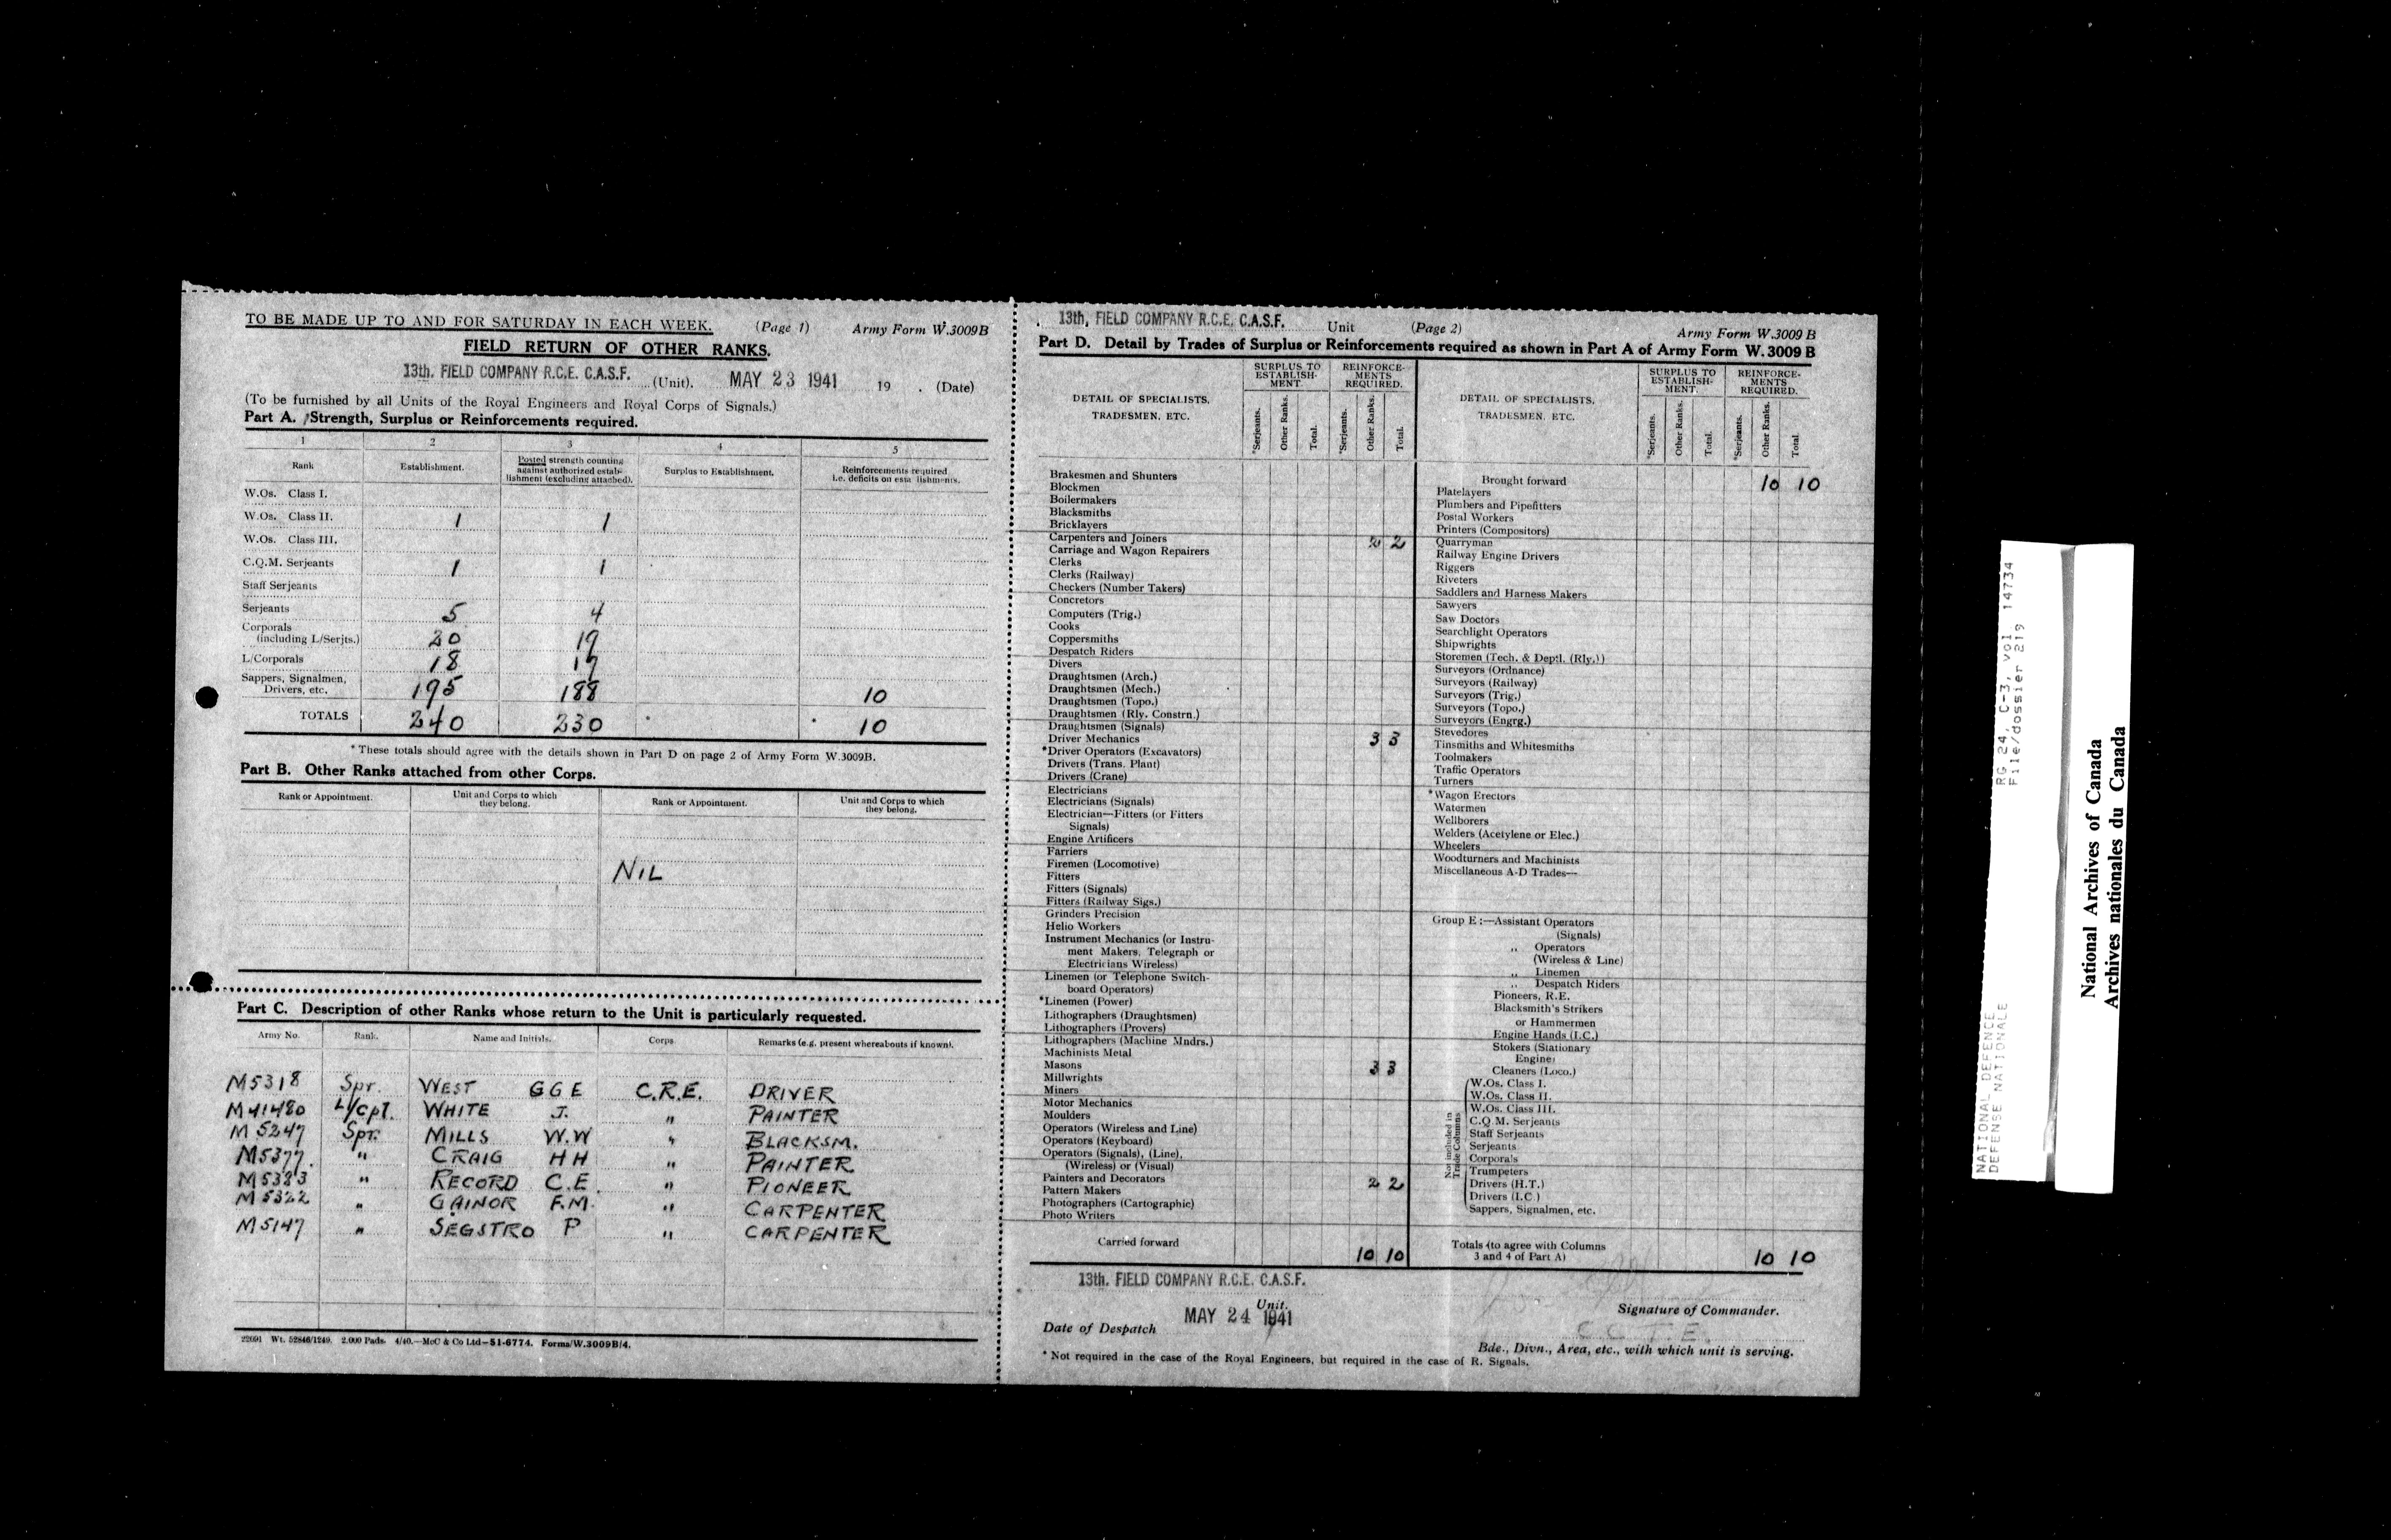 TO BE MADE UP TO AND FOR SATURDAY IN EACH WEEK. (Page 1) Army Form W.3009B
FIELD RETURN OF OTHER RANKS.
13th. FIELD COMPANY R.C.E. C.A.S.F. (Unit). MAY 23 1941 19 . (Date)
(To be furnished by all Units of the Royal Engineers and Royal Corps of Signals.)
Part A. Strength, Surplus or Reinforcements required.
1 2 3 4 5
Rank Establishment. Posted strength counting against authorized estab-lishment (excluding attached). Surplus to Establishment. Reinforcements required i.e. deficits on esta lishments.
W.Os. Class I.
W.Os. Class II. 1 1
W.Os. Class III.
C.Q.M. Serjeants 1 1
Staff Serjeants
Serjeants 5 4
Corporals
(including L/Serjts.) 20 19
L/Corporals 18 17
Sappers, Signalmen,
Drivers, etc. 195 188 10
TOTALS 240 230 10
* These totals should agree with the details shown in Part D on page 2 of Army Form W.3009B.
Part B. Other Ranks attached from other Corps.
Rank or Appointment. Unit and Corps to which they belong. Rank or Appointment. Unit and Corps to which they belong.
NIL
Part C. Description of other Ranks whose return to the Unit is particularly requested.
Army No. Rank. Name and Initials. Corps Remarks (e.g. present whereabouts if known).
M5318 Spr. WEST G G E C.R.E. DRIVER
M41480 L/Cpl. WHITE J. " PAINTER
M5247 Spr. MILLS W.W " BLACKSM.
M5377. " CRAIG H H " PAINTER
M5383 " RECORD C.E. " PIONEER
M5322 " GAINOR F.M. " CARPENTER
M5147 " SEGSTRO P " CARPENTER
22091 Wt. 52846/1249. 2,000 Pads. 4/40.—McC & Co Ltd—51-6774. Forms/W.3009B/4.
13th, FIELD COMPANY R.C.E. C.A.S.F. Unit (Page 2) Army Form W.3009 B
Part D. Detail by Trades of Surplus or Reinforcements required as shown in Part A of Army Form W.3009 B
DETAIL OF SPECIALISTS, TRADESMEN, ETC.
SURPLUS TO ESTABLISH-MENT. REINFORCE-MENTS REQUIRED.
*Serjeants. Other Ranks. Total. *Serjeants. Other Ranks. Total.
Brakesmen and Shunters
Blockmen
Boilermakers
Blacksmiths
Bricklayers
Carpenters and Joiners 2 2
Carriage and Wagon Repairers
Clerks
Clerks (Railway)
Checkers (Number Takers)
Concretors
Computers (Trig.)
Cooks
Coppersmiths
Despatch Riders
Divers
Draughtsmen (Arch.)
Draughtsmen (Mech.)
Draughtsmen (Topo.)
Draughtsmen (Rly. Constrn.)
Draughtsmen (Signals)
Driver Mechanics 3 3
*Driver Operators (Excavators)
Drivers (Trans. Plant)
Drivers (Crane)
Electricians
Electricians (Signals)
Electrician—Fitters (or Fitters
Signals)
Engine Artificers
Farriers
Firemen (Locomotive)
Fitters
Fitters (Signals)
Fitters (Railway Sigs.)
Grinders Precision
Helio Workers
Instrument Mechanics (or Instru-
ment Makers, Telegraph or
Electricians Wireless)
Linemen (or Telephone Switch-
board Operators)
*Linemen (Power)
Lithographers (Draughtsmen)
Lithographers (Provers)
Lithographers (Machine Mndrs.)
Machinists Metal
Masons 3 3
Millwrights
Miners
Motor Mechanics
Moulders
Operators (Wireless and Line)
Operators (Keyboard)
Operators (Signals), (Line),
(Wireless) or (Visual)
Painters and Decorators 2 2
Pattern Makers
Photographers (Cartographic)
Photo Writers
Carried forward 10 10
DETAIL OF SPECIALISTS, TRADESMEN, ETC.
SURPLUS TO ESTABLISH-MENT. REINFORCE-MENTS REQUIRED.
*Serjeants. Other Ranks. Total. *Serjeants. Other Ranks. Total.
Brought forward 10 10
Platelayers
Plumbers and Pipefitters
Postal Workers
Printers (Compositors)
Quarryman
Railway Engine Drivers
Riggers
Riveters
Saddlers and Harness Makers
Sawyers
Saw Doctors
Searchlight Operators
Shipwrights
Storemen (Tech. & Deptl. (Rly.))
Surveyors (Ordnance)
Surveyors (Railway)
Surveyors (Trig.)
Surveyors (Topo.)
Surveyors (Engrg.)
Stevedores
Tinsmiths and Whitesmiths
Toolmakers
Traffic Operators
Turners
*Wagon Erectors
Watermen
Wellborers
Welders (Acetylene or Elec.)
Wheelers
Woodturners and Machinists
Miscellaneous A-D Trades—
Group E :—Assistant Operators
(Signals)
,, Operators
(Wireless & Line)
,, Linemen
,, Despatch Riders
Pioneers, R.E.
Blacksmith's Strikers
or Hammermen
Engine Hands (I.C.)
Stokers (Stationary
Engine)
Cleaners (Loco.)
Not included in Trade Columns
W.Os. Class I.
W.Os. Class II.
W.Os. Class III.
C.Q.M. Serjeants
Staff Serjeants
Serjeants
Corporals
Trumpeters
Drivers (H.T.)
Drivers (I.C.)
Sappers, Signalmen, etc.
Totals (to agree with Columns
3 and 4 of Part A) 10 10
13th. FIELD COMPANY R.C.E. C.A.S.F.
Unit.
Date of Despatch MAY 24 1941
Signature of Commander.
Bde., Divn., Area, etc., with which unit is serving.
* Not required in the case of the Royal Engineers, but required in the case of R. Signals.
NATIONAL DEFENCE RG 24, C-3, vol 14734
DEFENSE NATIONALE File/dossier 219
National Archives of Canada
Archives nationales du Canada